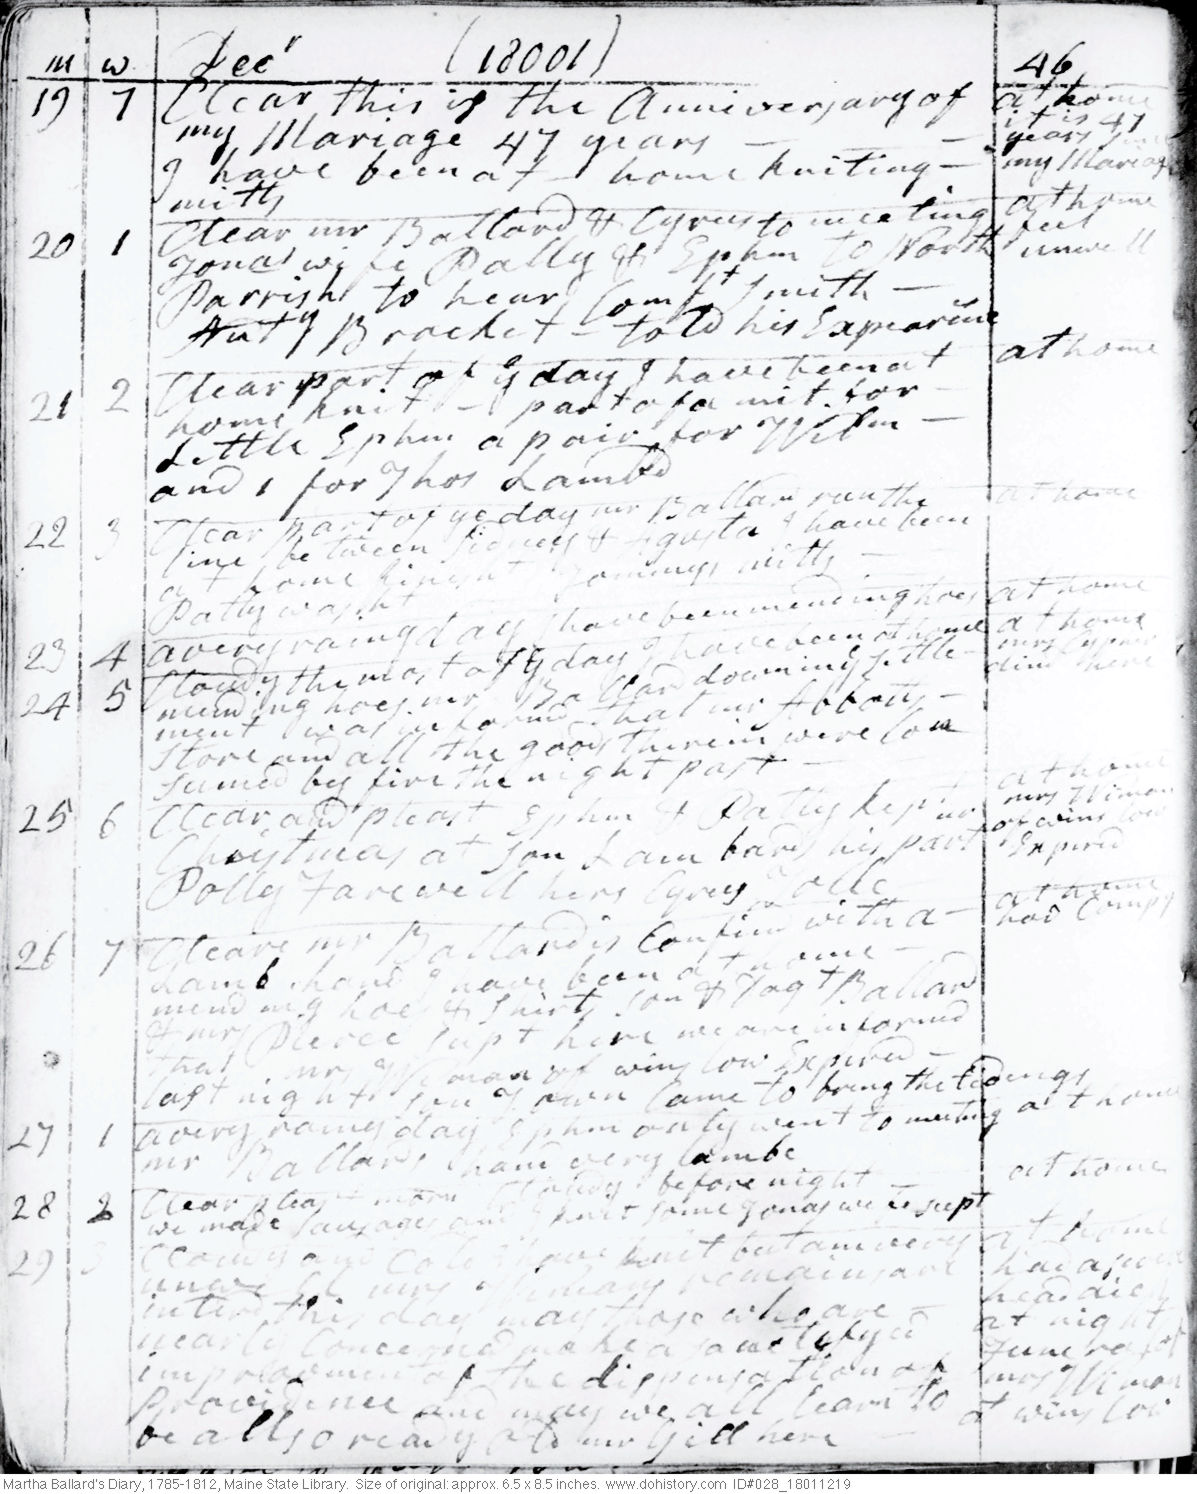 m w Decr (18001) 46
19 7 Clear this is the Anniversary of at home
my Mariage 47 years — — it is 47 years since
I have been at home kniting — my Mariage
mitts
20 1 Clear mr Ballard & Cyrus to meeting at home
Jonas wife Pally & Ephm to North feel unwell
Parrish to hear Comft Smith —
Anty Bracket — told his Expeariine
21 2 Clear part of ye day I have been at at home
home knit — part of a mit for —
Little Ephm a pair for Wilm —
and 1 for Thos Lambd
22 3 Clear part of ye day mr Ballard run the at home
line between Sidney & Agusta I have been
at home Tommys mitts —
Patty washt
23 4 a very rainy day I have been mending hoes at home
24 5 Cloudy the most of ye day I have been at home at home
mending hoes mr Ballard down in ye settle- mrs Cypher
ment was informd that mr Abbotts — dind here
store and all the goods therein were Con
sumed by fire the night past —
25 6 Clear and pleast Ephm & Patty kept at home
Chrystmas at son Lambards his part mrs Wiman
Polly Farewell hers Cyrus Tolle of winslow Expired
26 7 Cleare mr Ballard is Confind with a — at home
Lamb hand I have been at home — had Compy
mending hoes & Shirts son & Dagt Ballard
& mrs Pierce supt here we are informed
that mrs Wiman of winslow Expired —
last night son Town Came to bring the tidengs
27 1 a very rainy day Ephm only went to meeting at home
mr Ballards hand very lambe
28 2 Clear pleast morn Cloudy before night — at home
we made Sausages and knit some Jonas we is supt
29 3 Cloudy and Cold I have knit but am very at home
unwell mrs Wimans remains are had a
interd this day may those who are — head
nearly Concerned make a sanctifyed at night
improovment of the dispensation of Funeral of
Providence and may we all learn to mrs Wiman
be allso ready old mr Gill here — at winslow
Martha Ballard's Diary, 1785-1812, Maine State Library. Size of original: approx. 6.5 x 8.5 inches. www.dohistory.com ID#028_18011219